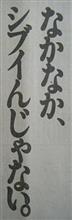 なかなか、
シブイんじゃない。